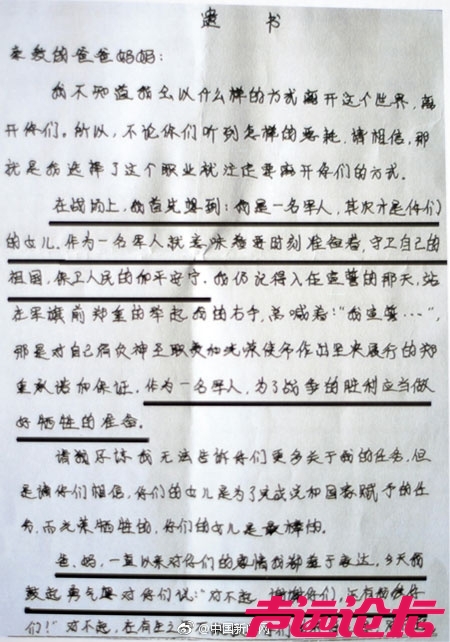 遗 书
亲敬的爸爸妈妈:
我不知道我会以什么样的方式离开这个世界,离
开你们。所以,不论你们听到怎样的恶耗,请相信,那
就是我选择了这个职业就注定要离开你们的方式。
在战场上,我首先想到:我是一名军人,其次才是你们
的女儿。作为一名军人就意味着要时刻准备着,守卫自己的
祖国,保卫人民的和平安宁。我仍记得入伍宣誓的那天,站
在军旗前郑重的举起我的右手,高喊着:"我宣誓……",
那是对自己肩负神圣职责和光荣使命作出
重承诺和保证。作为一名军人,为了战争的胜利应当做
好牺牲的准备。
请我无法告诉你们更多关于我的任务,但
是请你们相信,你们的女儿是为了完成党和国家赋予的任
务,而光荣牺牲的,你们的女儿是最棒的。
爸、妈,一直以来对你们的感情我都羞于表达,今天我
鼓起勇气要对你们说:"对不起,谢谢你们,还有我爱你
们!"对不起,在有生之
@中国新闻网
声远论坛